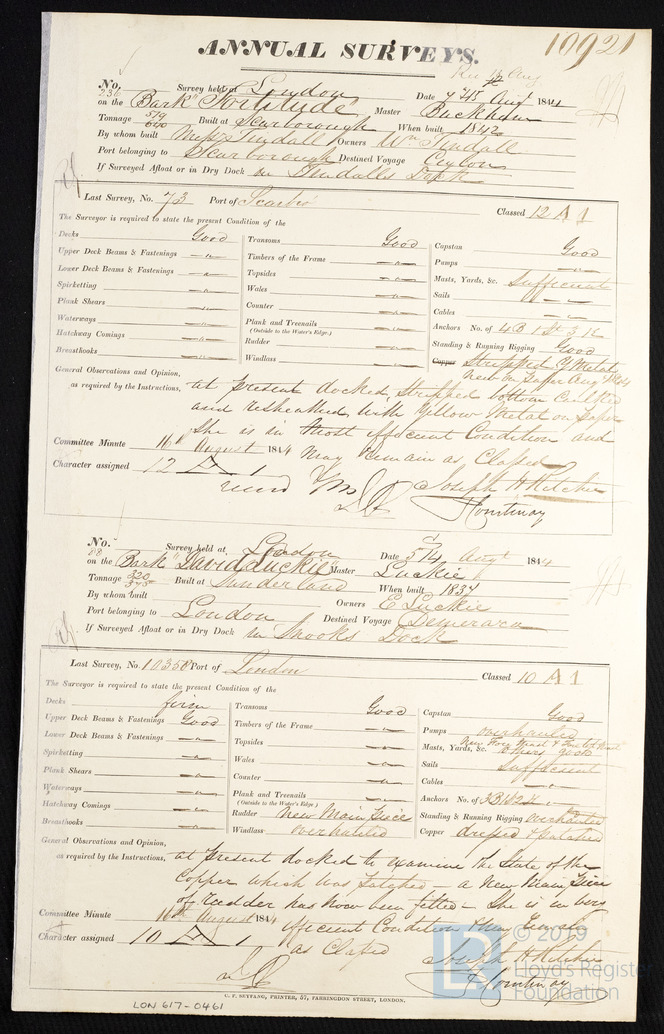 10921
ANNUAL SURVEYS.
No. 236 Survey held at London Date Augt 1844
on the Bark "Fortitude" Master Buckham
Tonnage 519 640 Built at Scarborough When built 1842
By whom built Messrs Tindall Owners Wm Tindall
Port belonging to Scarborough Destined Voyage Ceylon
If Surveyed Afloat or in Dry Dock in Tindalls Dock
Last Survey, No. 73 Port of Scarbro Classed 12 A 1
The Surveyor is required to state the present Condition of the
Decks Good
Upper Deck Beams & Fastenings
Lower Deck Beams & Fastenings
Spirketting
Plank Shears
Waterways
Hatchway Comings
Breasthooks
Transoms Good
Timbers of the Frame
Topsides
Wales
Counter
Plank and Treenails
(Outside to the Water's Edge.)
Rudder
Windlass
Capstan Good
Pumps
Masts, Yards, &c. Sufficient
Sails
Cables
Anchors No. of 4B 1 St 3 K
Standing & Running Rigging Good
Copper Stripped Y Metal
New on Paper Aug 1844
General Observations and Opinion,
as required by the Instructions, at present docked, stripped bottom Caulked
and resheathed, with Yellow Metal on paper
She is in most efficient Condition and
Committee Minute 16th August 1844 may remain as Classed
Character assigned 12 A 1 Joseph H Ritchie
F Courtenay
No. 88 Survey held at London Date 3/14 Augt 1844
on the Bark "David Luckie" Master Luckie
Tonnage 320 375 Built at Sunderland When built 1837
By whom built Owners E Luckie
Port belonging to London Destined Voyage Demerara
If Surveyed Afloat or in Dry Dock in Snooks Dock
Last Survey, No. 10350 Port of London Classed 10 A 1
The Surveyor is required to state the present Condition of the
Decks firm
Upper Deck Beams & Fastenings Good
Lower Deck Beams & Fastenings
Spirketting
Plank Shears
Waterways
Hatchway Comings
Breasthooks
Transoms Good
Timbers of the Frame
Topsides
Wales
Counter
Plank and Treenails
(Outside to the Water's Edge.)
Rudder New Main Piece
Windlass overhauled
Capstan Good
Pumps overhauled
Masts, Yards, &c. others good
Sails Sufficient
Cables
Anchors No. of
Standing & Running Rigging overhauled
Copper dressed & patched
General Observations and Opinion,
as required by the Instructions, at present docked to examine the State of the
Copper which was patched - a New Main Piece
of rudder has now been fitted - She is in very
Committee Minute 16th August 1844 efficient Condition & may remain
Character assigned 10 A 1 as Classed
Joseph H Ritchie
F Courtenay
C. F. SEYFANG, PRINTER, 57, FARRINGDON STREET, LONDON.
LON 617-0461
© 2019
Lloyd's Register
Foundation